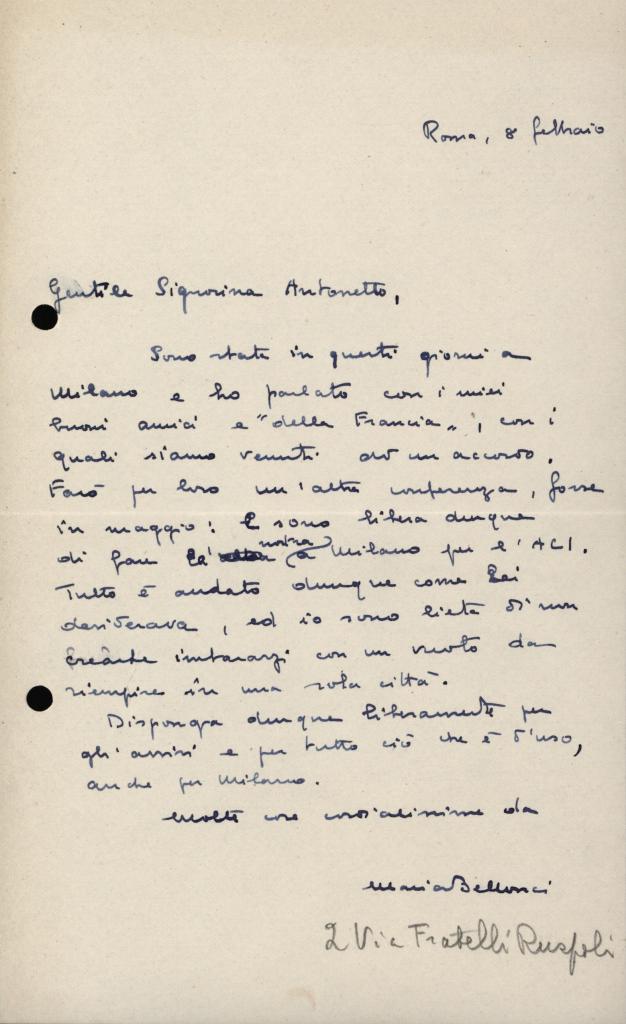 Roma, 8 febbraio
Gentile Signorina Antonetto,
Sono stata in questi giorni a
Milano e ho parlato con i miei
buoni amici e "della Francia", con i
quali siamo venuti ad un accordo.
Farò per loro un'altra conferenza, forse
in maggio: E sono libera dunque
di fare la nostra a Milano per l'ACI.
Tutto è andato dunque come Lei
desiderava, ed io sono lieta di non
crearLe imbarazzi con un vuoto da
riempire in una sola città.
Disponga dunque liberamente per
gli avvisi e per tutto ciò che è d'uso,
anche per Milano.
Molte cose cordialissime da
Maria Bellonci
2 Via Fratelli Ruspoli